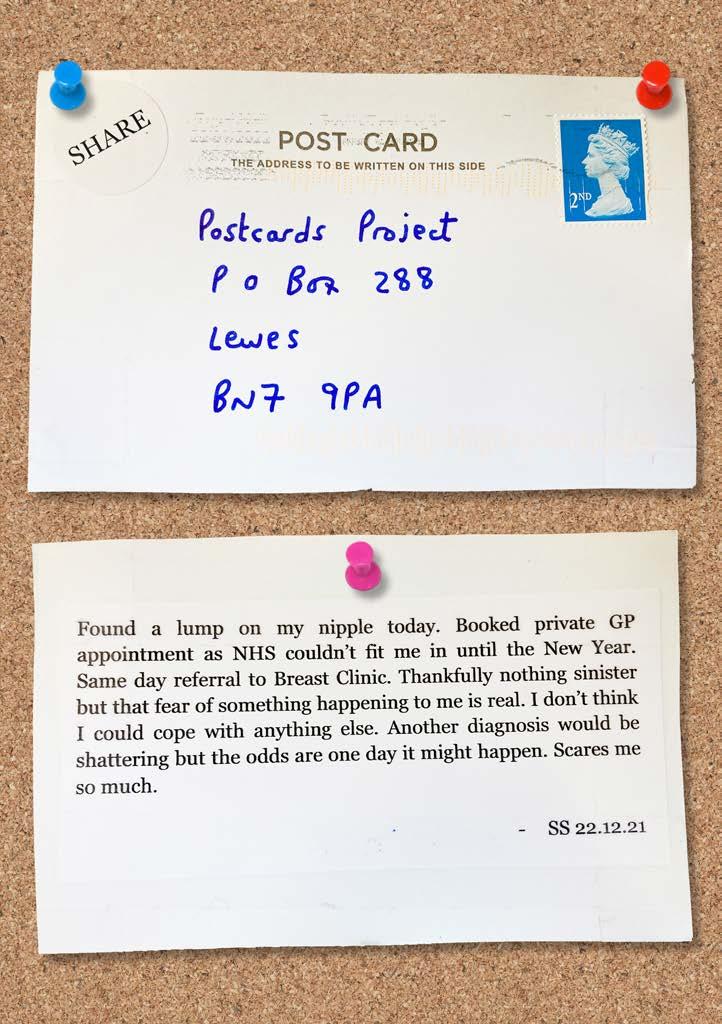 SHARE
POST CARD
THE ADDRESS TO BE WRITTEN ON THIS SIDE
2ND
Postcards Project
P O Box 288
Lewes
BN7 9PA
Found a lump on my nipple today. Booked private GP
appointment as NHS couldn't fit me in until the New Year.
Same day referral to Breast Clinic. Thankfully nothing sinister
but that fear of something happening to me is real. I don't think
I could cope with anything else. Another diagnosis would be
shattering but the odds are one day it might happen. Scares me
so much.
- SS 22.12.21